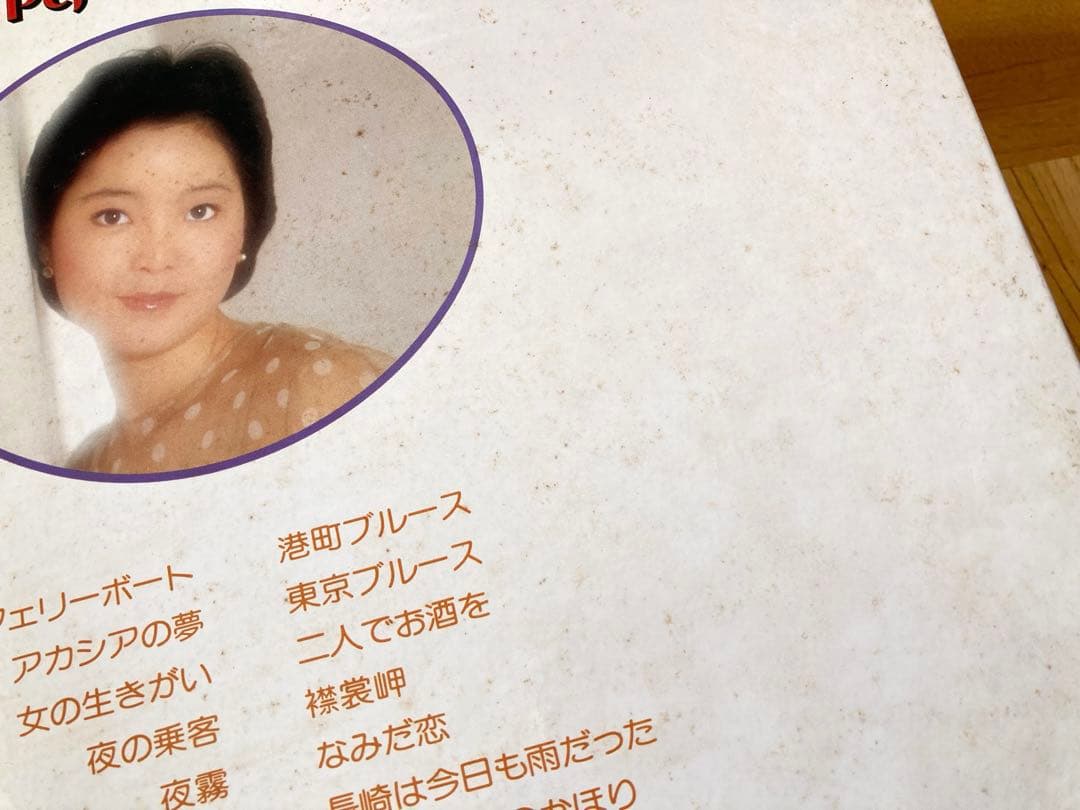 フェリーボート
アカシアの夢
女の生きがい
夜の乗客
夜霧
港町ブルース
東京ブルース
二人でお酒を
襟裳岬
なみだ恋
長崎は今日も雨だった
かほり